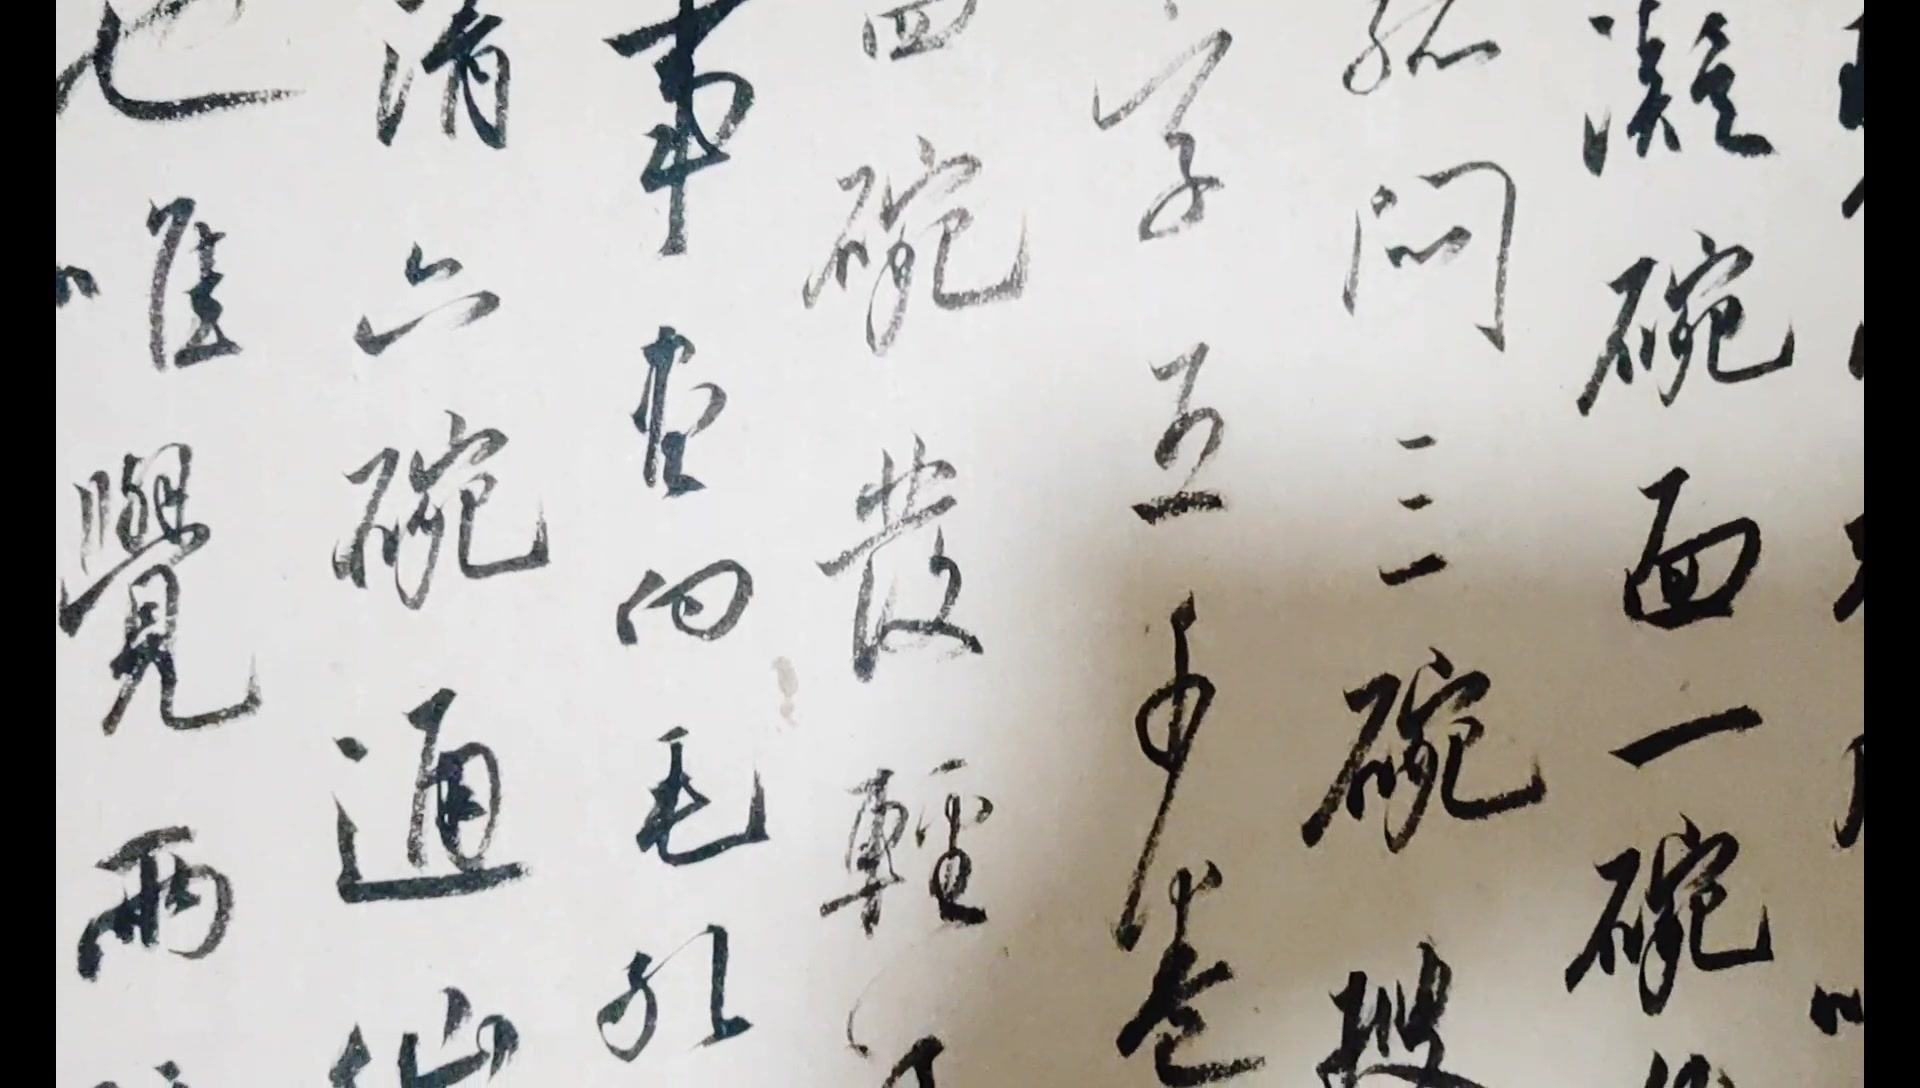 凝碗面一碗
孤悶三碗搜
字五千卷
四碗發輕
事盡向毛孔
清六碗通仙
也唯覺兩